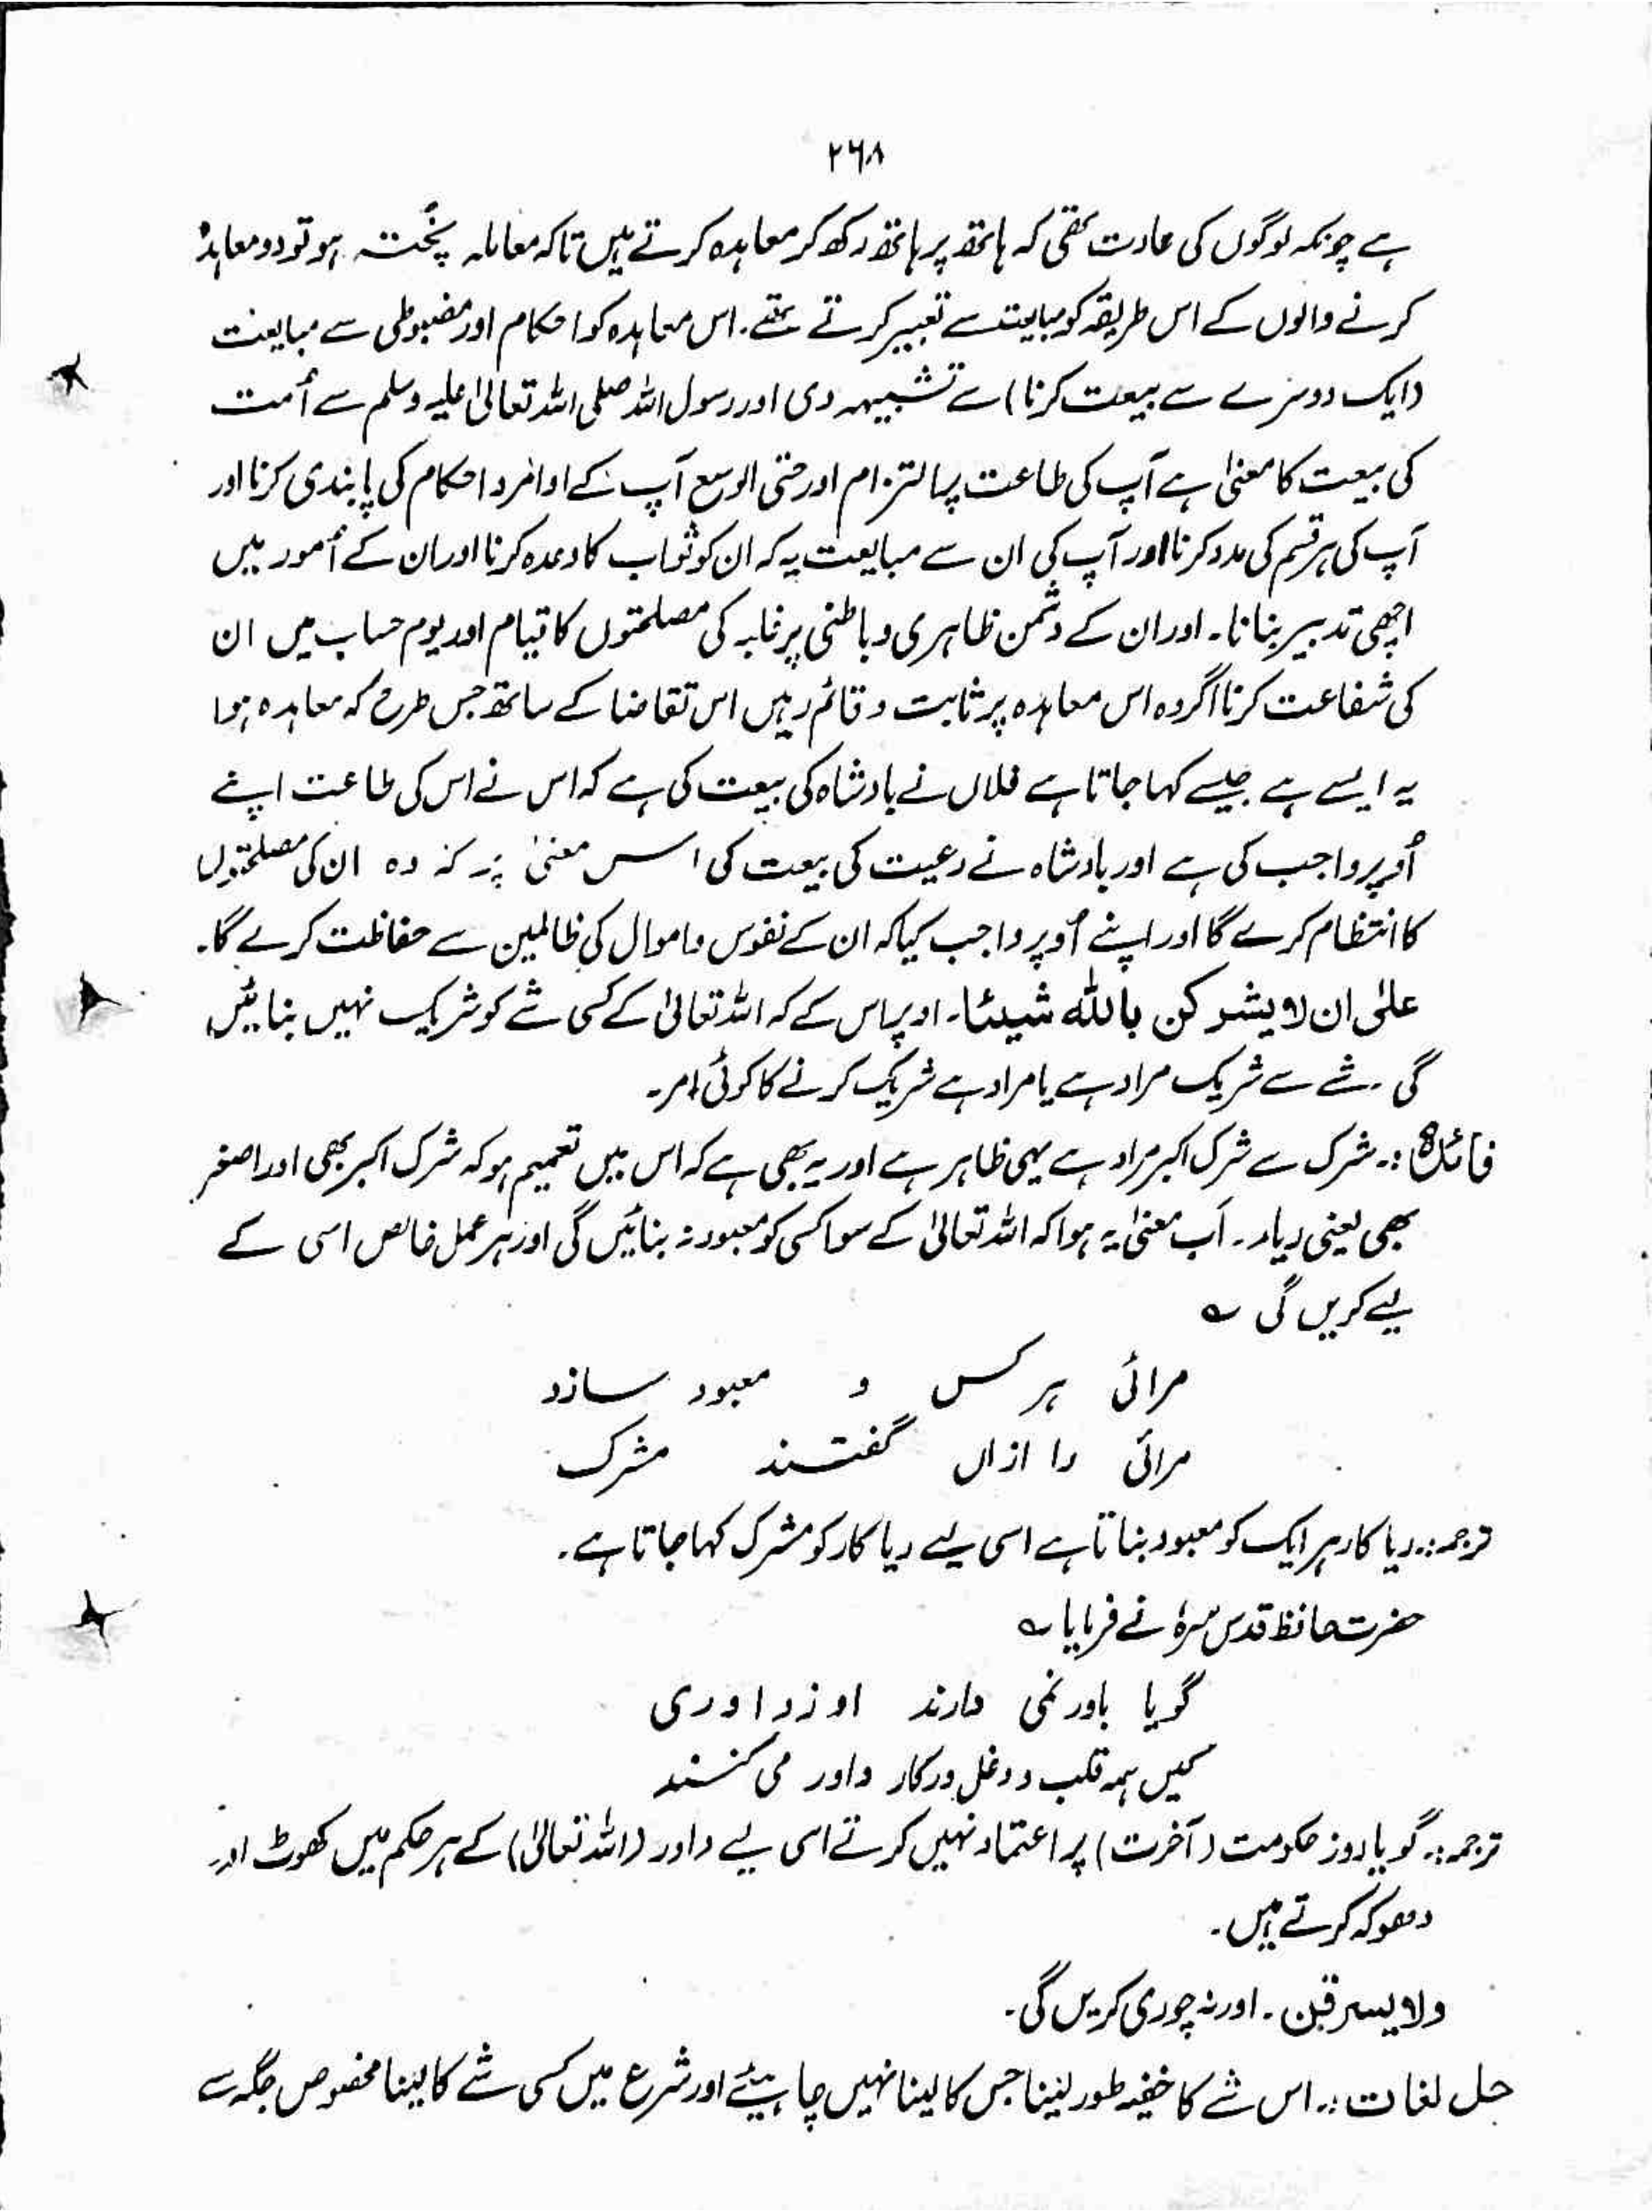 ۲۶۸
ہے چونکہ لوگوں کی عادت تھی کہ ہاتھ پر ہاتھ رکھ کر معاہدہ کرتے ہیں تاکہ معاملہ پختہ ہو تو دو معاہدہ
کرنے والوں کے اس طریقہ کو مبایعت سے تعبیر کرتے تھے۔ اس معاہدہ کو احکام اور مضبوطی سے مبایعت
(ایک دوسرے سے بیعت کرنا) سے تشبیہہ دی اور رسول اللہ صلی اللہ تعالیٰ علیہ وسلم سے اُمت
کی بیعت کا معنیٰ ہے آپ کی طاعت پر التزام اور حتی الوسع آپ کے اوامر و احکام کی پابندی کرنا اور
آپ کی ہر قسم کی مدد کرنا اور آپ کی ان سے مبایعت یہ کہ ان کو ثواب کا وعدہ کرنا اور ان کے اُمور میں
اچھی تدبیر بنانا۔ اور ان کے دشمن ظاہری و باطنی پر غلبہ کی مصلحتوں کا قیام اور یوم حساب میں ان
کی شفاعت کرنا اگر وہ اس معاہدہ پر ثابت و قائم رہیں اس تقاضا کے ساتھ جس طرح کہ معاہدہ ہوا
یہ ایسے ہے جیسے کہا جاتا ہے فلاں نے بادشاہ کی بیعت کی ہے کہ اس نے اس کی طاعت اپنے
اُوپر واجب کی ہے اور بادشاہ نے رعیت کی بیعت کی اس معنیٰ پر کہ وہ ان کی مصلحتوں
کا انتظام کرے گا اور اپنے اُوپر واجب کیا کہ ان کے نفوس و اموال کی ظالمین سے حفاظت کرے گا۔
علیٰ ان لا یشرکن باللہ شیئا۔ اوپر اس کے کہ اللہ تعالیٰ کے کسی شے کو شریک نہیں بنائیں
گی۔ شے سے شریک مراد ہے یا مراد ہے شریک کرنے کا کوئی امر۔
فائدہ :۔ شرک سے شرک اکبر مراد ہے یہی ظاہر ہے اور یہ بھی ہے کہ اس میں تعمیم ہو کہ شرک اکبر بھی اور اصغر
بھی یعنی ریاء۔ اَب معنیٰ یہ ہوا کہ اللہ تعالیٰ کے سوا کسی کو معبود نہ بنائیں گی اور ہر عمل خالص اسی کے
لیے کریں گی ؎
مرائی ہر کس و معبود سازد
مرائی را ازاں گفتند مشرک
ترجمہ :۔ ریا کار ہر ایک کو معبود بناتا ہے اسی لیے ریا کار کو مشرک کہا جاتا ہے۔
حضرت حافظ قدس سرہٗ نے فرمایا ؎
گویا باور نمی دارند اوزداوری
کیں ہمہ قلب و دغل درکار داور می کنند
ترجمہ :۔ گویا روز حکومت (آخرت) پر اعتماد نہیں کرتے اسی لیے داور (اللہ تعالیٰ) کے ہر حکم میں کھوٹ اور
دھوکہ کرتے ہیں۔
ولا یسرقن۔ اور نہ چوری کریں گی۔
حل لغات :۔ اس شے کا خفیہ طور لینا جس کا لینا نہیں چاہیئے اور شرع میں کسی شے کا لینا مخصوص جگہ سے